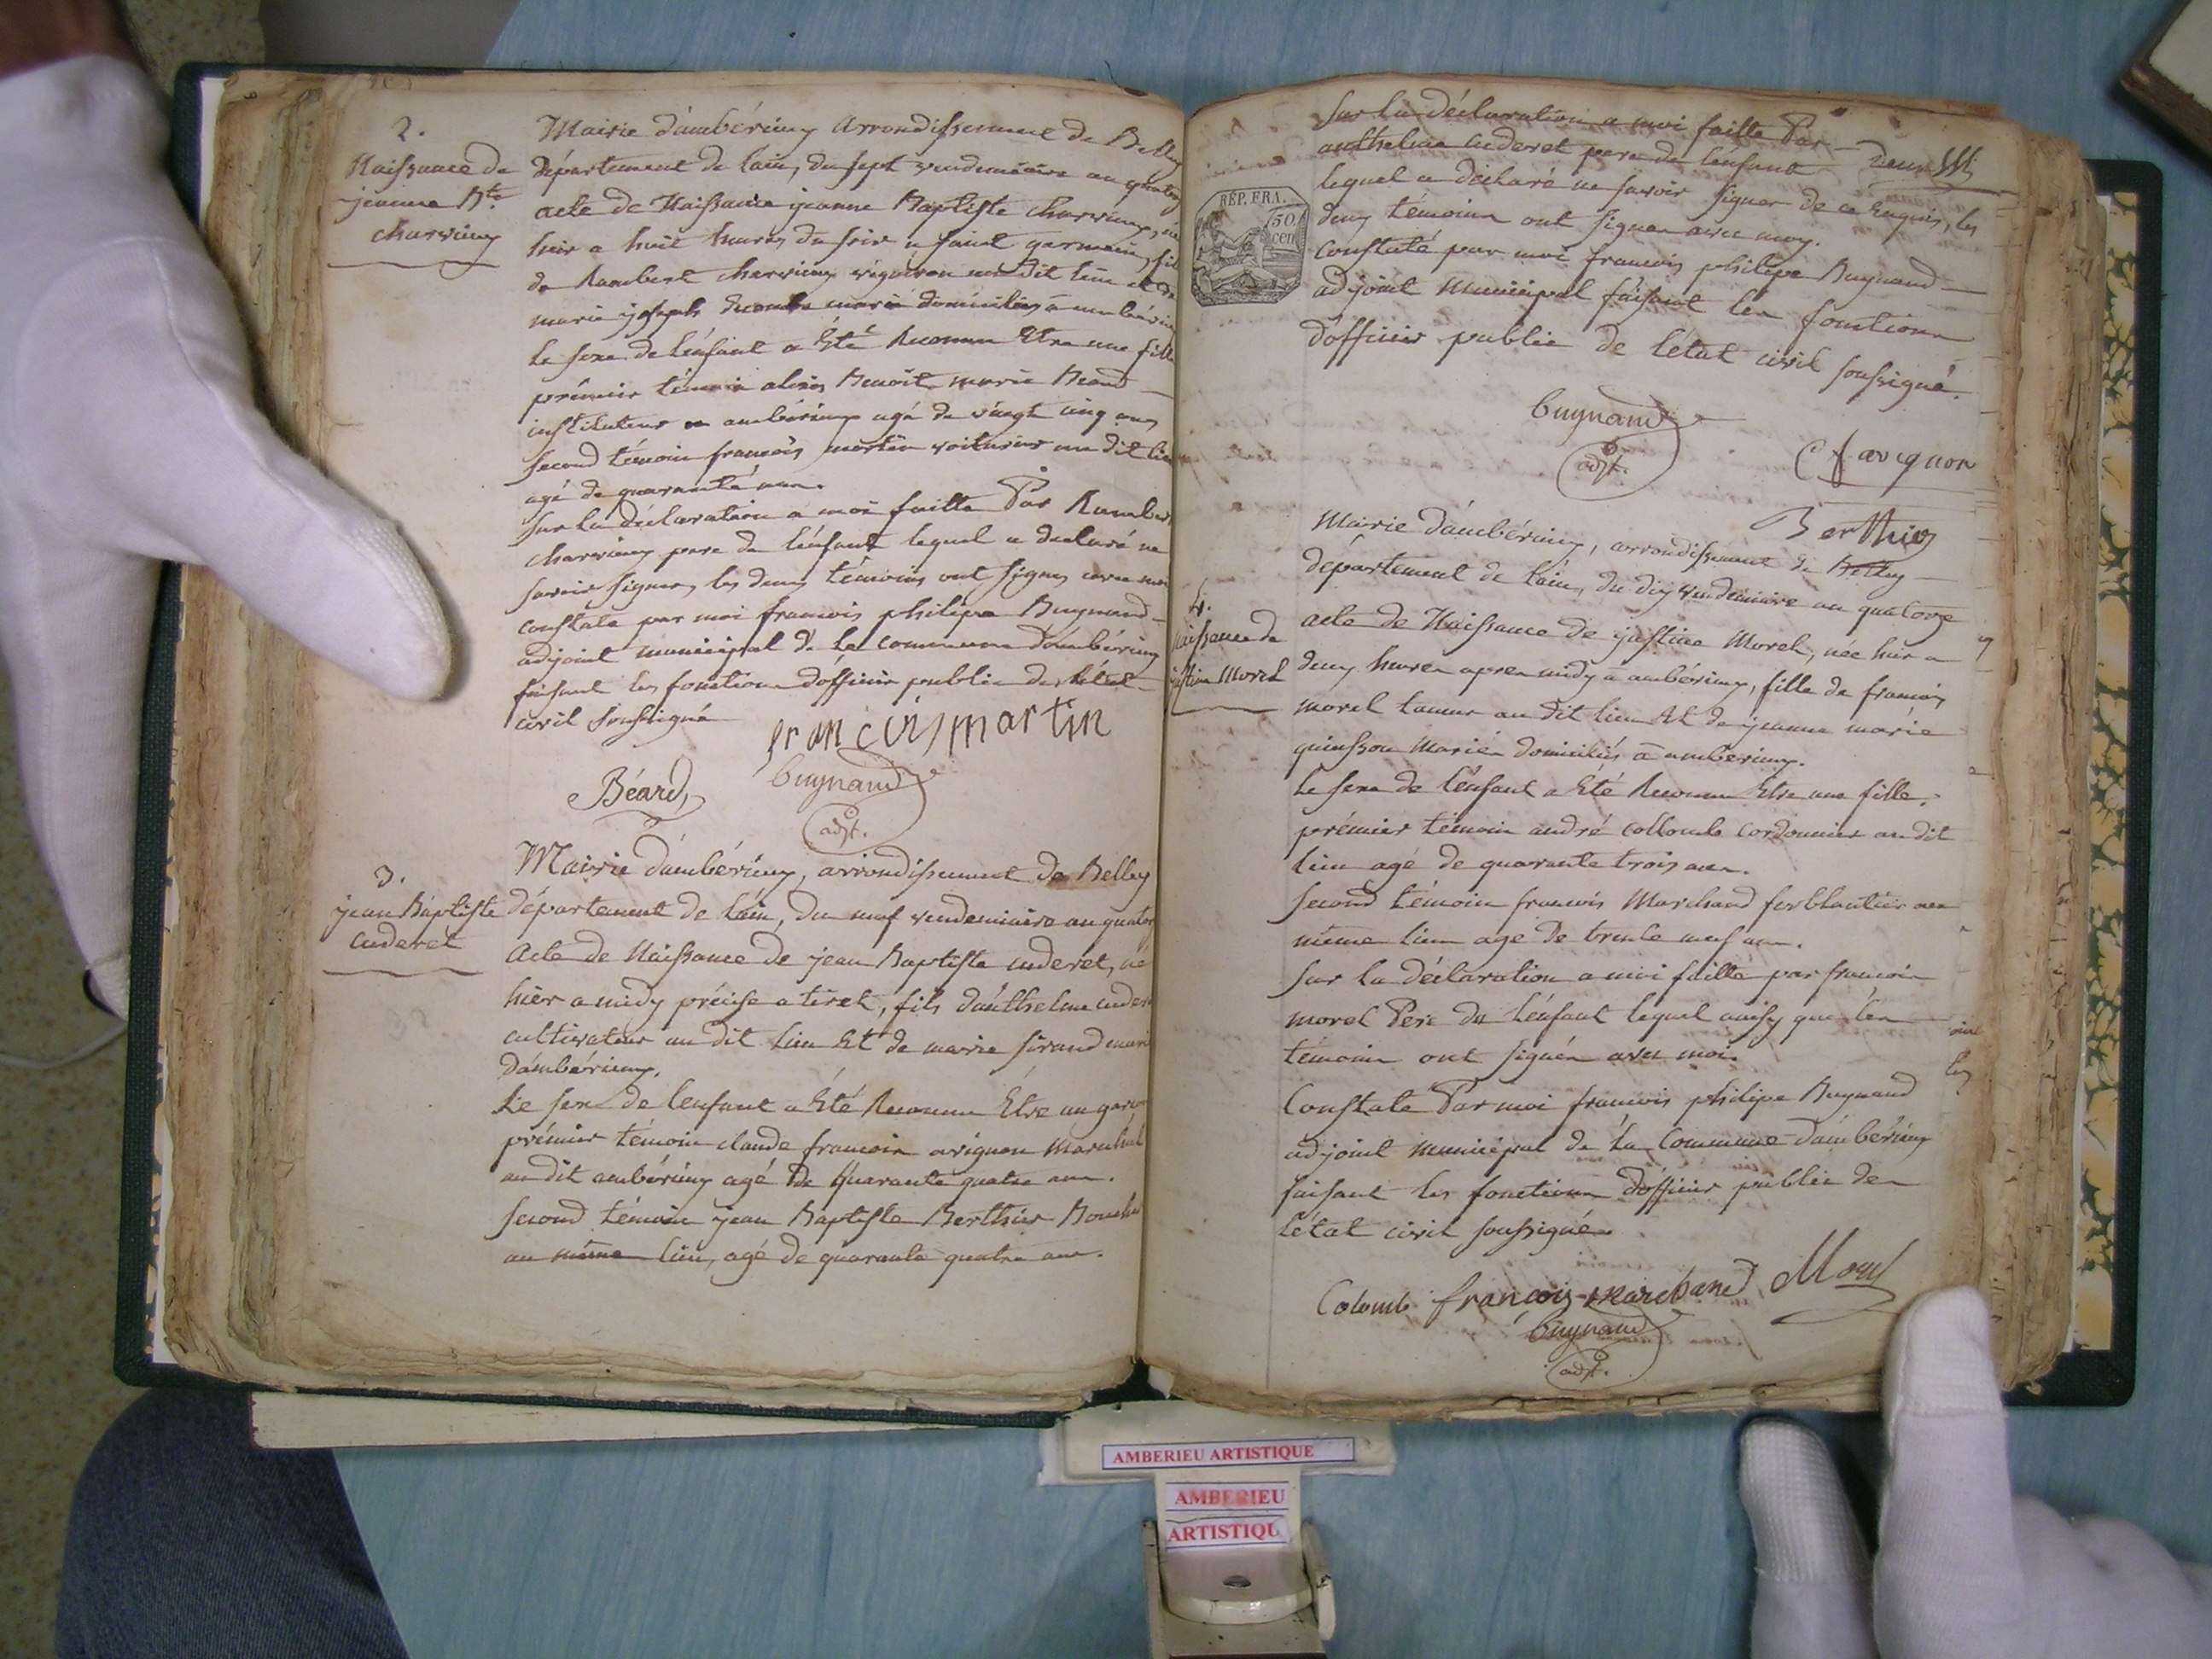 2.
Naissance de
jeanne Bte
charvieux
Mairie d'ambérieux arrondissement de Belley
département de l'ain, du sept vendemiaire an quator
acte de Naissance jeanne Baptiste charvieux, né
hier a huit heures du soir a saint germain, fil
de Rambert charvieux vigneron au dit lieu et de
marie joseph mariés domiciliés a ambérieux
Le sexe de l'enfant a été Reconnu Etre une fille
prémier témoin Benoit marie Beard
instituteur a ambérieux agé de vingt cinq ans
second témoin francois martin voiturier au dit lieu
agé de quarante ans.
sur la déclaration a moi faitte Par Rambert
charvieux pere de l'enfant lequel a declaré ne
savoir signer, les deux témoins ont signés avec moi
constaté par moi francois philipe Buynand
adjoint municipal de la commune d'ambérieux
faisant les fonctions d'officier public de l'état
civil soussigné
francois martin
Béard
buynand
adjt.
3.
jean Baptiste
cuderet
Mairie d'ambérieux, arrondissement de Belley
département de l'ain, du neuf vendemiaire an quator
acte de Naissance de jean Baptiste cuderet, né
hier a midy précise a tiret, fils d'anthelme cuderet
cultivateur au dit lieu Et de marie sirand mari
d'ambérieux.
Le sexe de l'enfant a Eté Reconnu Etre un garcon
prémier témoin claude francois avignon marechal
au dit ambérieux agé de quarante quatre ans.
second témoin jean Baptiste Berthier Boucher
au même lieu, agé de quarante quatre ans.
sur la déclaration a moi faitte Par
anthelme cuderet pere de l'enfant
lequel a déclaré ne savoir signer de ce Enquis, les
deux témoins ont signés avec moy.
constaté par moi francois philipe Buynand
adjoint municipal faisant les fonctions
d'officier public de l'etat civil soussigné.
RÉP. FRA.
50
cen
buynand
adjt.
C f avignon
Berthier
4.
naissance de
justine Morel
Mairie d'ambérieux, arrondissement de Belley
département de l'ain, du dix vendemiaire an quatorze
acte de Naissance de justine Morel, née hier a
deux heures apres midy a ambérieux, fille de francois
morel taneur au dit lieu Et de jeanne marie
quinsson mariés domiciliés a ambérieux.
Le sexe de l'enfant a Eté Reconnu Etre une fille.
prémier témoin andré collomb cordonnier au dit
lieu agé de quarante trois ans.
second témoin francois Marchand ferblantier au
même lieu agé de trente neuf ans.
sur la déclaration a moi faitte par francois
morel Pere de l'enfant lequel ainsy que les
témoins ont signés avec moi.
Constaté Par moi francois philipe Buynand
adjoint municipal de la Commune d'ambérieux
faisant les fonctions d'officier public de
l'état civil soussigné
Colomb francois marchand Morel
buynand
adjt.
AMBERIEU ARTISTIQUE
AMBERIEU
ARTISTIQU